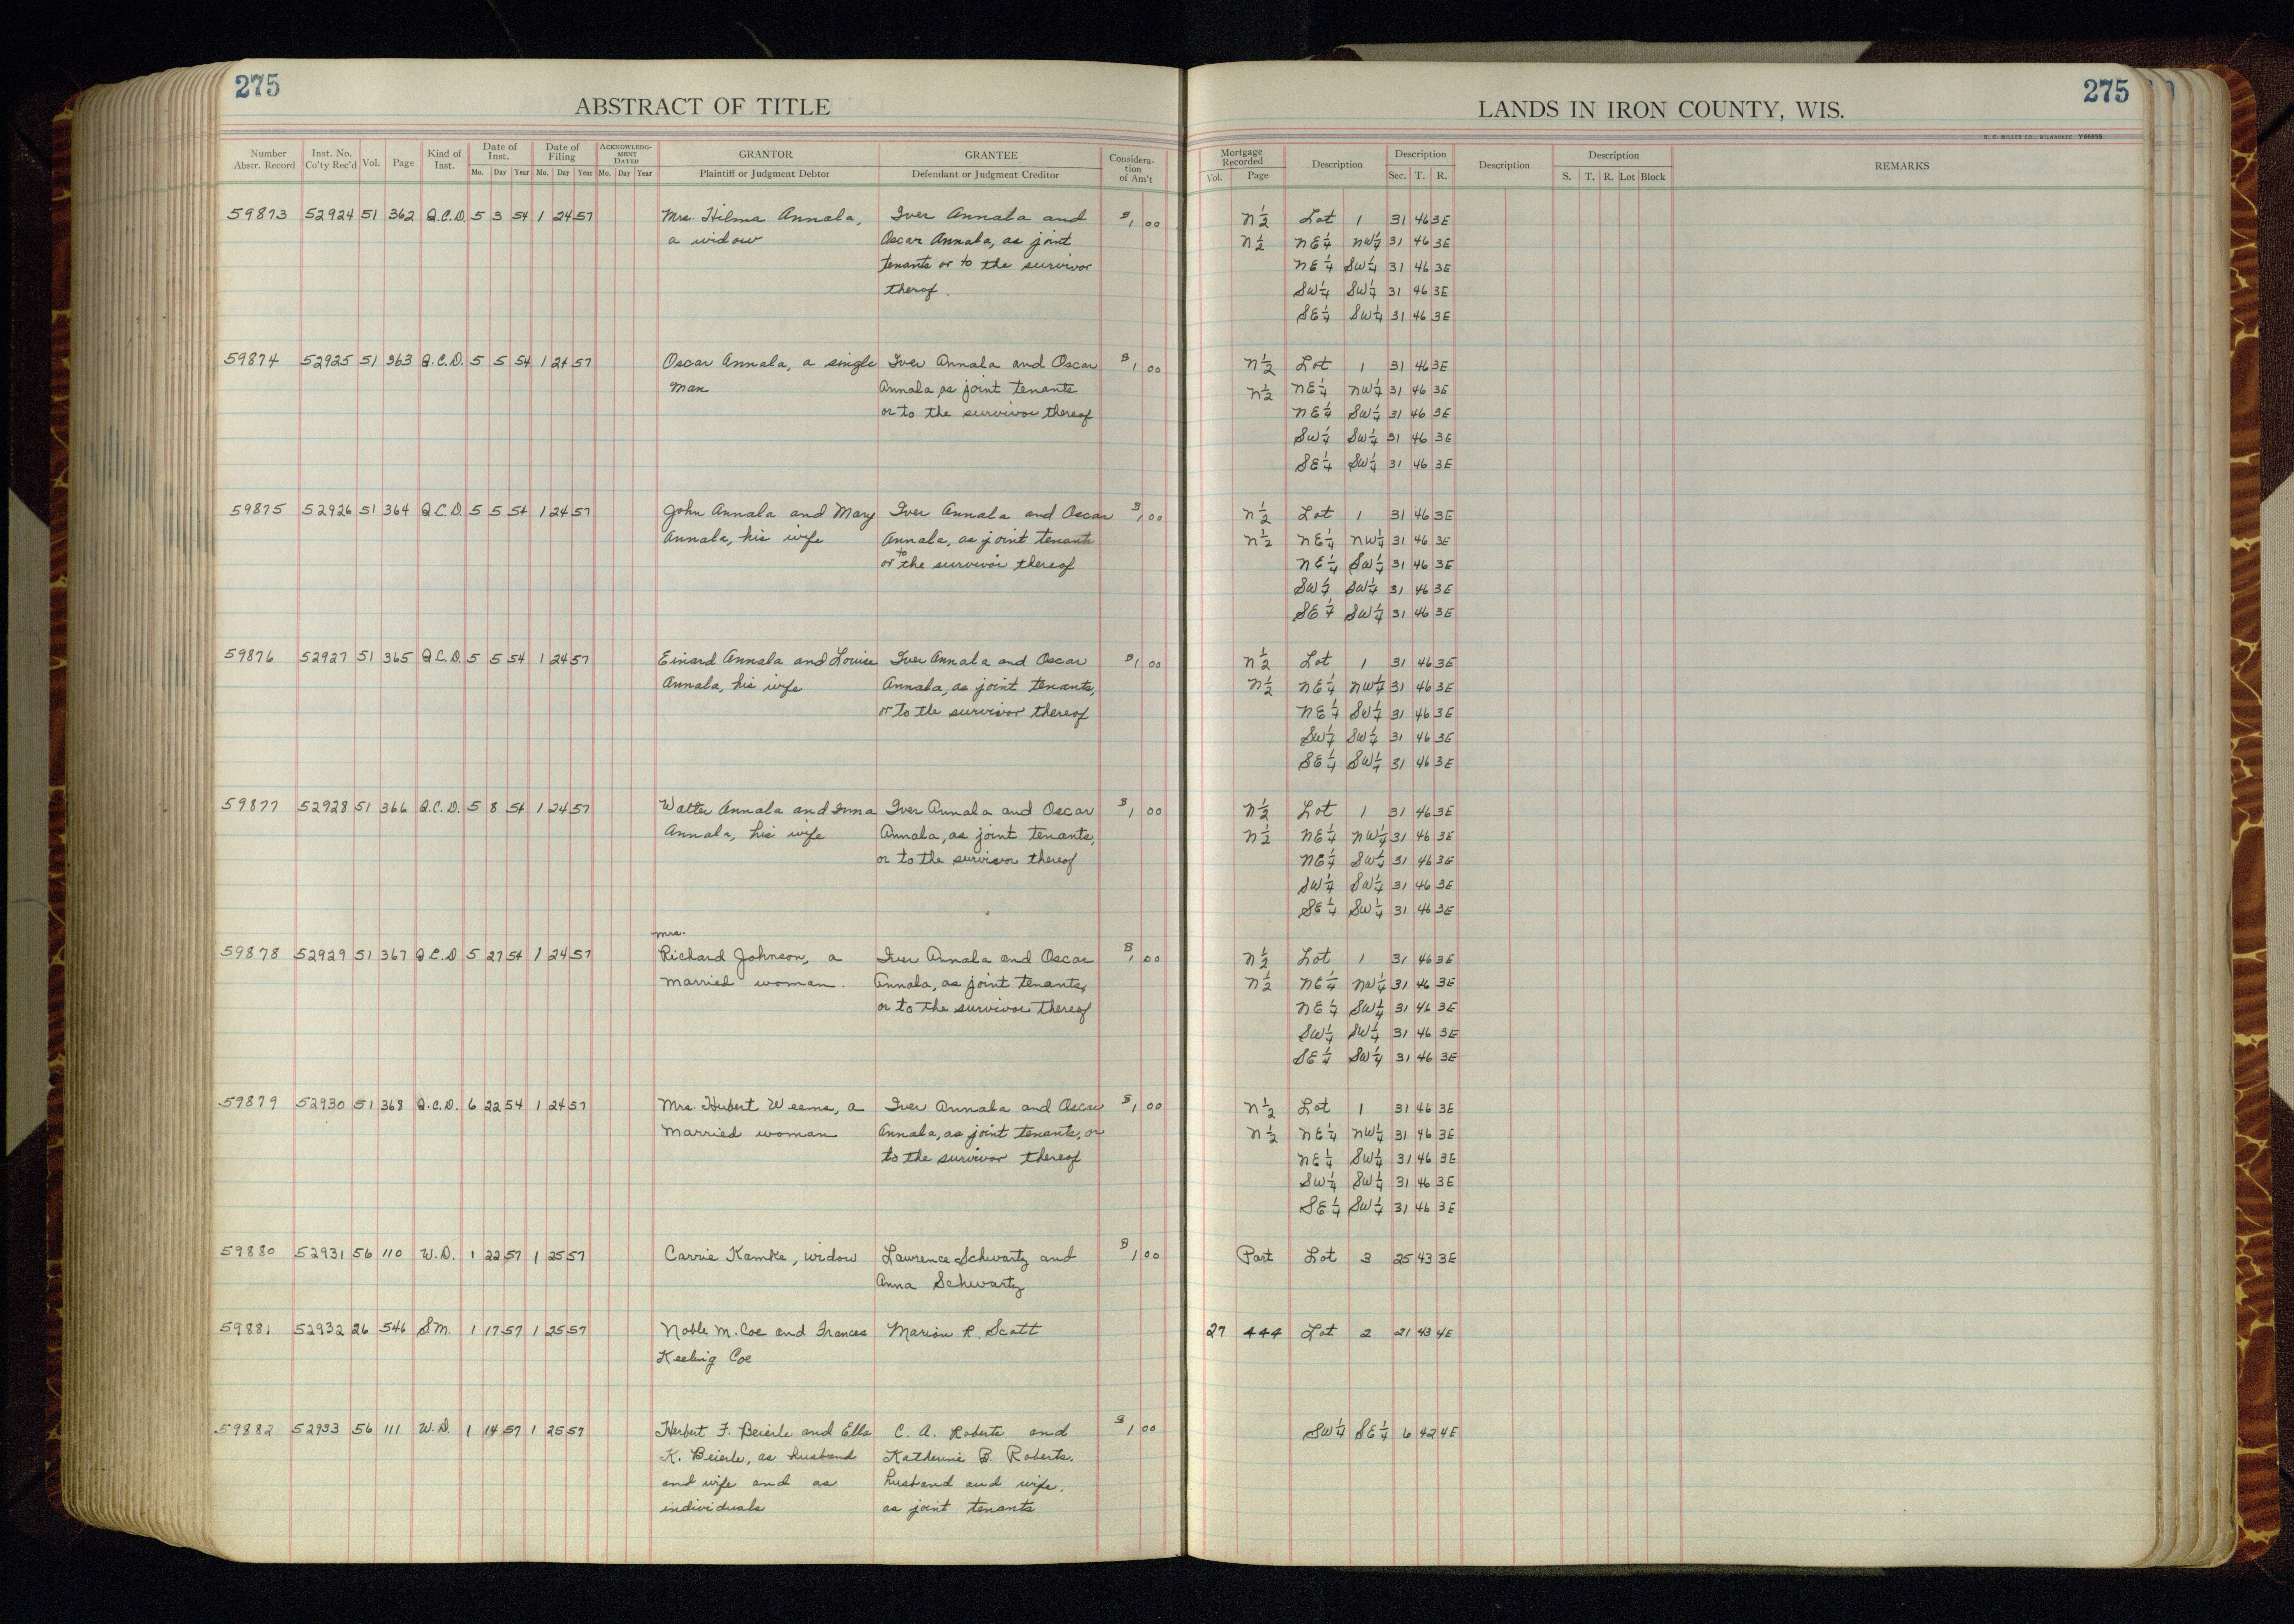 275
ABSTRACT OF TITLE
Number Abstr. Record | Inst. No. Co'ty Rec'd | Vol. | Page | Kind of Inst. | Date of Inst. Mo. Day Year | Date of Filing Mo. Day Year | ACKNOWLEDGMENT DATED Mo. Day Year | GRANTOR Plaintiff or Judgment Debtor | GRANTEE Defendant or Judgment Creditor | Consideration of Am't
59873 52924 51 362 Q.C.D. 5 3 54 1 24 57 Mrs. Hilma Annala, Iver Annala and $1 00
a widow Oscar Annala, as joint
tenants or to the survivor
therof.
59874 52925 51 363 Q.C.D. 5 5 54 1 24 57 Oscar Annala, a single Iver Annala and Oscar $1 00
man Annala as joint tenants
or to the survivor thereof
59875 52926 51 364 Q.C.D. 5 5 54 1 24 57 John Annala and Mary Iver Annala and Oscar $1 00
Annala, his wife Annala, as joint tenants
or to the survivor thereof
59876 52927 51 365 Q.C.D. 5 5 54 1 24 57 Einard Annala and Louise Iver Annala and Oscar $1 00
Annala, his wife Annala, as joint tenants,
or to the survivor thereof
59877 52928 51 366 Q.C.D. 5 8 54 1 24 57 Walter Annala and Irma Iver Annala and Oscar $1 00
Annala, his wife Annala, as joint tenants,
or to the survivor thereof
Mrs.
59878 52929 51 367 Q.C.D 5 27 54 1 24 57 Richard Johnson, a Iver Annala and Oscar $1 00
married woman. Annala, as joint tenants,
or to the survivor thereof
59879 52930 51 368 Q.C.D. 6 22 54 1 24 57 Mrs. Hubert Weems, a Iver Annala and Oscar $1 00
married woman Annala, as joint tenants, or
to the survivor thereof
59880 52931 56 110 W.D. 1 22 57 1 25 57 Carrie Kamke, widow Lawrence Schwartz and $1 00
Anna Schwartz
59881 52932 26 546 S.M. 1 17 57 1 25 57 Noble M. Coe and Frances Marion R. Scott
Keeling Coe
59882 52933 56 111 W.D. 1 14 57 1 25 57 Herbert F. Beierle and Ella C. A. Roberts and $1 00
K. Beierle, as husband Katherine B. Roberts,
and wife and as husband and wife,
individuals as joint tenants
275
LANDS IN IRON COUNTY, WIS.
H. C. MILLER CO., MILWAUKEE Y66055
Mortgage Recorded Vol. Page | Description | Description Sec. T. R. | Description | Description S. T. R. Lot Block | REMARKS
N½ Lot 1 31 46 3E
N½ NE¼ NW¼ 31 46 3E
NE¼ SW¼ 31 46 3E
SW¼ SW¼ 31 46 3E
SE¼ SW¼ 31 46 3E
N½ Lot 1 31 46 3E
N½ NE¼ NW¼ 31 46 3E
NE¼ SW¼ 31 46 3E
SW¼ SW¼ 31 46 3E
SE¼ SW¼ 31 46 3E
N½ Lot 1 31 46 3E
N½ NE¼ NW¼ 31 46 3E
NE¼ SW¼ 31 46 3E
SW¼ SW¼ 31 46 3E
SE¼ SW¼ 31 46 3E
N½ Lot 1 31 46 3E
N½ NE¼ NW¼ 31 46 3E
NE¼ SW¼ 31 46 3E
SW¼ SW¼ 31 46 3E
SE¼ SW¼ 31 46 3E
N½ Lot 1 31 46 3E
N½ NE¼ NW¼ 31 46 3E
NE¼ SW¼ 31 46 3E
SW¼ SW¼ 31 46 3E
SE¼ SW¼ 31 46 3E
N½ Lot 1 31 46 3E
N½ NE¼ NW¼ 31 46 3E
NE¼ SW¼ 31 46 3E
SW¼ SW¼ 31 46 3E
SE¼ SW¼ 31 46 3E
N½ Lot 1 31 46 3E
N½ NE¼ NW¼ 31 46 3E
NE¼ SW¼ 31 46 3E
SW¼ SW¼ 31 46 3E
SE¼ SW¼ 31 46 3E
Part Lot 3 25 43 3E
27 444 Lot 2 21 43 4E
SW¼ SE¼ 6 42 4E